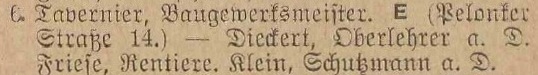 6. Tavernier, Baugewerksmeister. E (Pelonker
Straße 14.) — Dieckert, Oberlehrer a. D.
Friese, Rentiere. Klein, Schutzmann a. D.